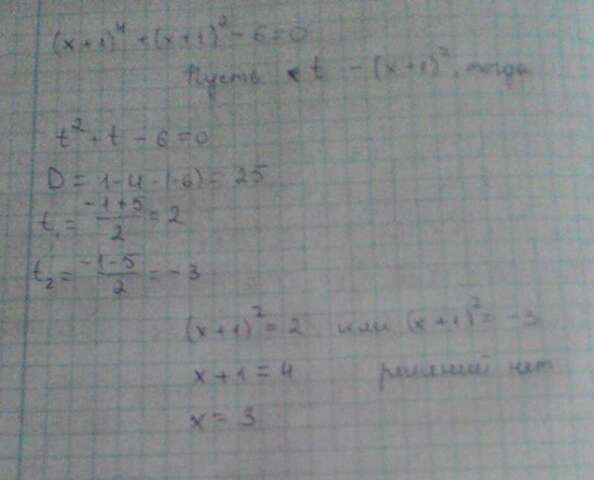 (x+1)⁴ + (x+1)² - 6 = 0
Пусть t - (x+1)², тогда
t² + t - 6 = 0
D = 1 - 4 · (-6) = 25
t₁ = (-1+5)/2 = 2
t₂ = (-1-5)/2 = -3
(x+1)² = 2 или (x+1)² = -3
x + 1 = 4 решений нет
x = 3